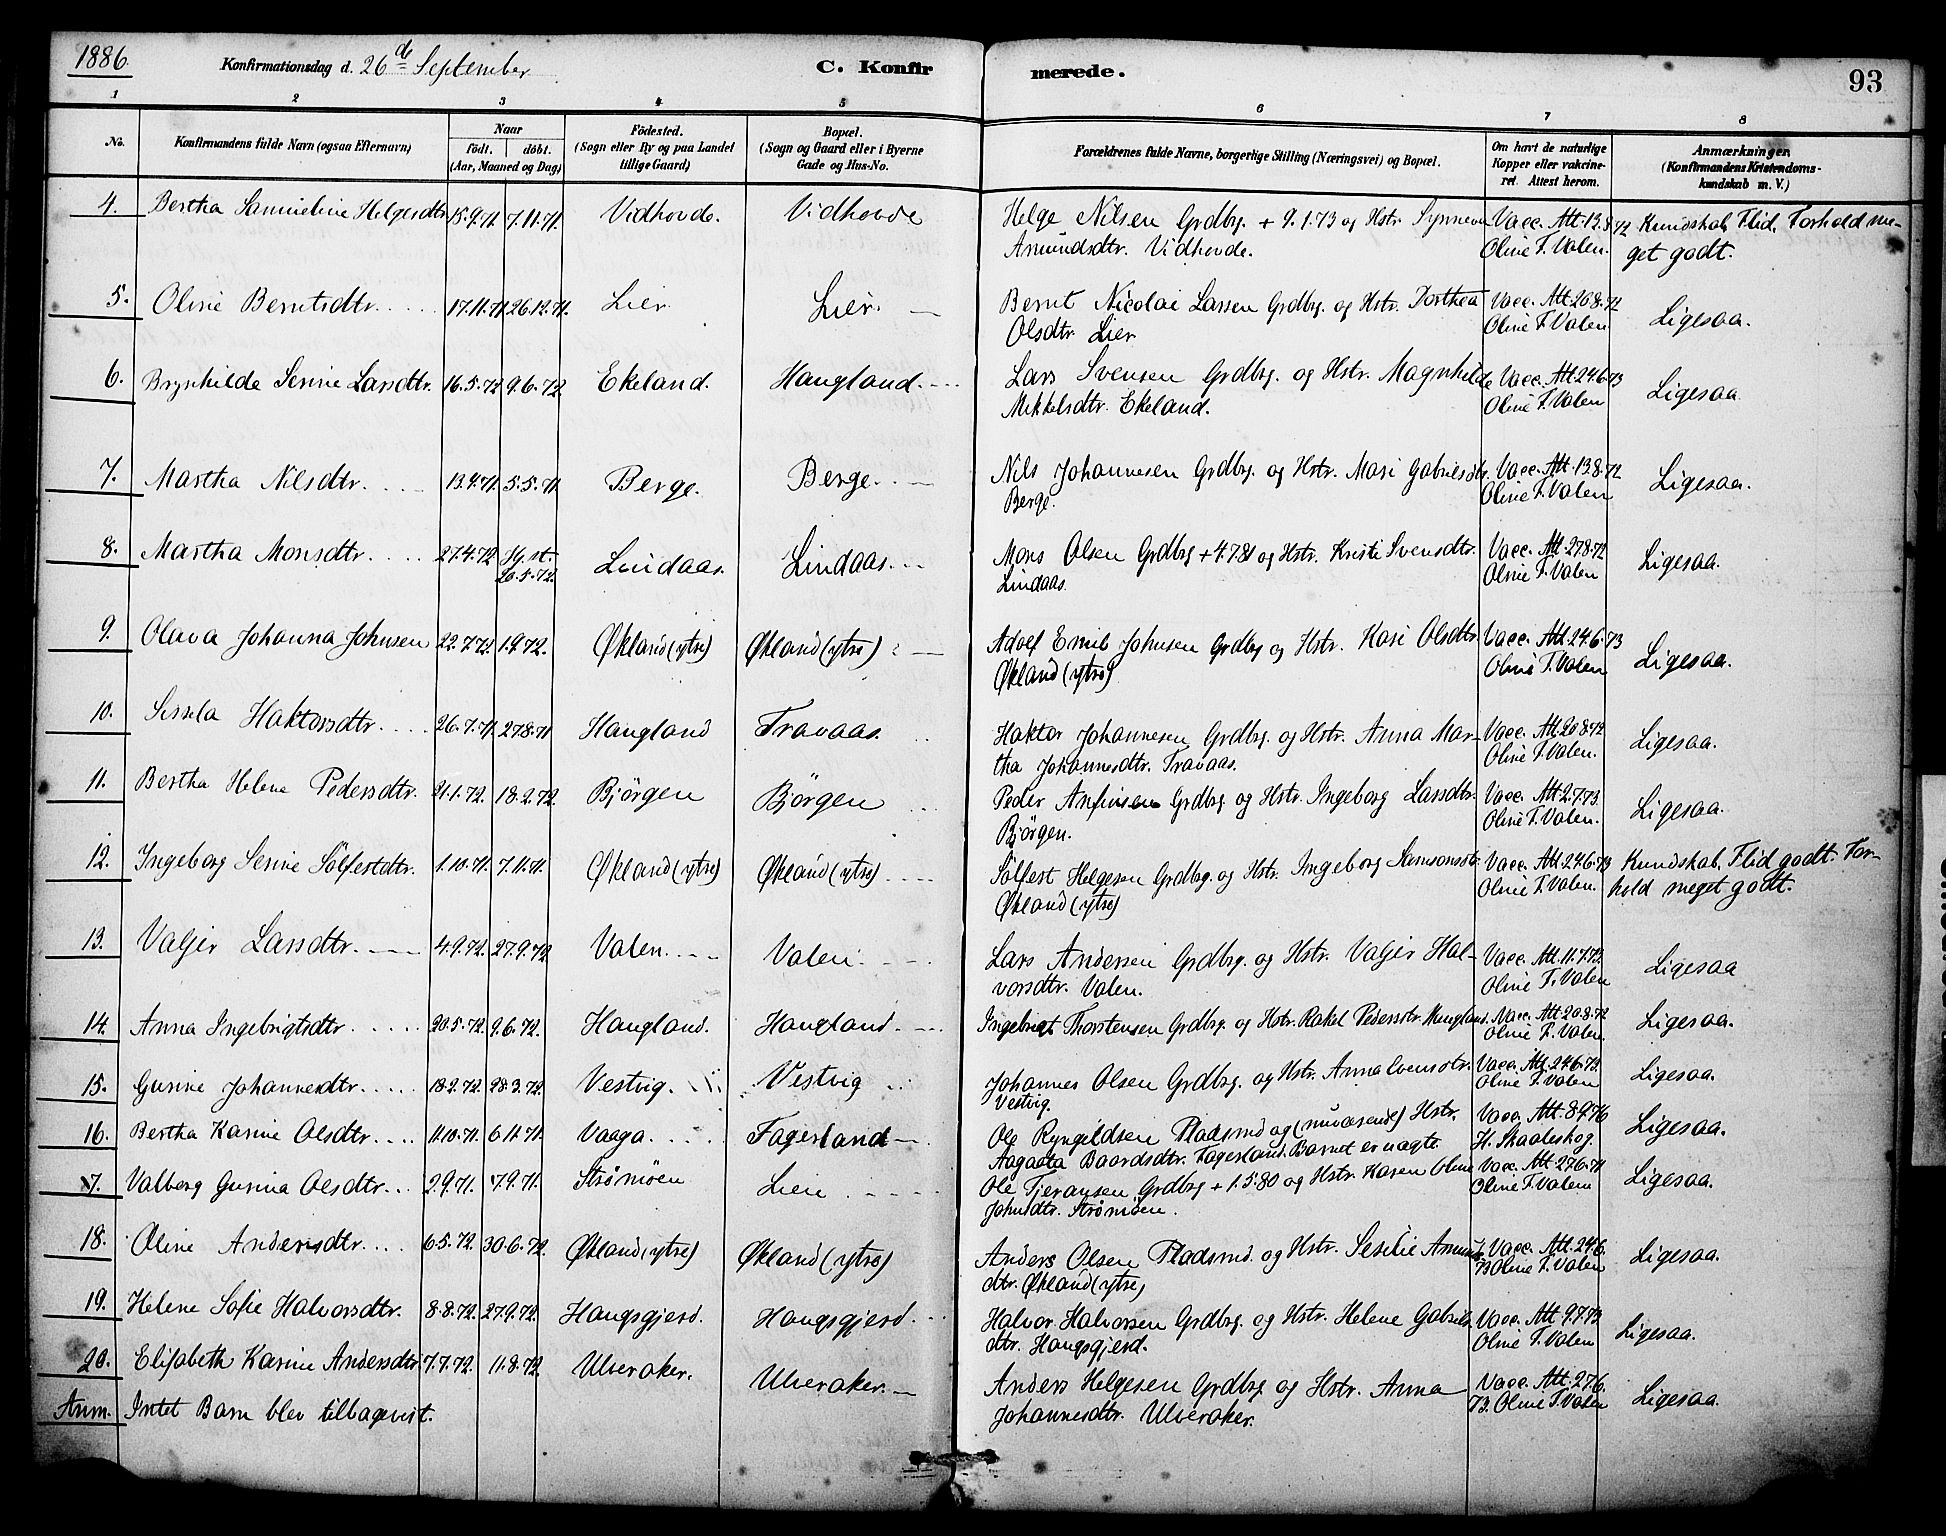 1886.
Konfirmationsdag d. 26de September
C. Konfirmerede.
93
1 2 3 4 5 6 7 8
No.
Konfirmandens fulde Navn (ogsaa Efternavn)
Naar
födt. döbt.
(Aar, Maaned og Dag)
Födested.
(Sogn eller By og paa Landet
tillige Gaard)
Bopæl.
(Sogn og Gaard eller i Byerne
Gade og Hus-No.
Forældrenes fulde Navne, borgerlige Stilling (Næringsvei) og Bopæl.
Om havt de naturlige
Kopper eller vakcine-
ret. Attest herom.
Anmærkninger
(Konfirmandens Kristendoms-
kundskab m. V.)
4. Bertha Samueline Helgesdtr 15.9.71. 7.11.71. Vidhovde. Vidhovde Helge Nilsen Grdbrg. + 9.1.73 og Hstr. Synneva Vacc. Att. 13.8.72 Kundskab, Flid, Forhold me-
Amundsdtr. Vidhovde. Oline T. Valen. get godt.
5. Oline Berntsdtr. 17.11.71. 26.12.71. Lier. Lier. Bernt Nicolai Larsen Grdbrg. og Hstr. Dorthea Vacc. Att. 20.8.72 Ligesaa.
Olsdtr. Lier Oline T. Valen
6. Brynhilde Serine Larsdtr. 16.5.72. 9.6.72. Ekeland. Haugland. Lars Svensen Grdbrg. og Hstr. Magnhilde Vacc. Att. 24.6.73 Ligesaa
Mikkelsdtr. Ekeland. Oline T. Valen
7. Martha Nilsdtr. 13.4.71. 5.5.71. Berge. Berge. Nils Johannesen Grdbrg. og Hstr. Mari Gabrielsdtr. Vacc. Att. 13.8.72 Ligesaa.
Berge. Oline T. Valen
8. Martha Monsdtr. 27.4.72 Hj. st. 20.5.72. Lindaas. Lindaas. Mons Olsen Grdbrg + 4.7.81 og Hstr. Kristi Svensdtr. Vacc. Att. 27.8.72 Ligesaa.
Lindaas. Oline T. Valen
9. Olava Johanna Johnsen 22.7.72. 1.9.72. Økland (ytre) Økland (ytre) Adolf Emil Johnsen Grdbrg og Hstr. Kari Olsdtr. Vacc. Att. 24.6.73 Ligesaa.
Økland (ytre) Oline T. Valen
10. Sissela Haktorsdtr. 26.7.71. 27.8.71 Haugland Travaas. Haktor Johannesen Grdbrg. og Hstr. Anna Mar- Vacc. Att. 20.8.72 Ligesaa.
tha Johannesdtr. Travaas. Oline T. Valen.
11. Bertha Helene Pedersdtr. 21.1.72. 18.2.72. Bjørgen Bjørgen Peder Anfinsen Grdbrg. og Hstr. Ingeborg Larsdtr. Vacc. Att. 2.7.73. Ligesaa.
Bjørgen. Oline T. Valen.
12. Ingeborg Serine Sölfestdtr. 1.10.71. 7.11.71. Økland (ytre) Økland (ytre) Sölfest Helgesen Grdbrg. og Hstr. Ingeborg Samsonsdtr. Vacc. Att. 24.6.73 Kundskab, Flid godt. For-
Økland (ytre) Oline T. Valen. hold meget godt.
13. Valjer Larsdtr. 4.9.72. 27.9.72 Valen. Valen. Lars Andersen Grdbrg. og Hstr. Valjer Hal- Vacc. Att. 11.7.73. Ligesaa
vorsdtr. Valen. Oline T. Valen
14. Anna Ingebrigtsdtr. 30.5.72. 9.6.72. Haugland. Haugland. Ingebrigt Thorstensen Grdbrg. og Hstr. Rakel Pedersdtr. Haugland. Vacc. Att. 20.8.72 Ligesaa.
Oline T. Valen.
15. Gurine Johannesdtr. 18.2.72. 28.3.72. Vestvig. Vestvig Johannes Olsen Grdbrg. og Hstr. Anna Svensdtr. Vacc. Att. 24.6.73. Ligesaa.
Vestvig. Oline T. Valen
16. Bertha Karine Olsdtr. 11.10.71. 6.11.71. Vaaga. Fagerland Ole Ryngildsen Pladsmd og (nuværende) Hstr. Vacc. Att. 8.9.76 Ligesaa.
Aagaata Baardsdtr. Fagerland. Barnet er uægte. H. Skaaleskog.
17. Valborg Gurina Olsdtr. 2.9.71. 7.9.71. Strømöen Lien Ole Tjeransen Grdbrg + 1.5.80 og Hstr. Karen Oline Vacc. Att. 27.6.71 Ligesaa.
Johnsdtr. Strømöen. Oline T. Valen
18. Oline Andersdtr. 6.5.72. 30.6.72. Økland (ytre) Økland (ytre) Anders Olsen Pladsmd. og Hstr. Sesilie Amunds- Vacc. Att. 24.6. Ligesaa.
dtr. Økland (ytre) 73 Oline T. Valen
19. Helene Sofie Halvorsdtr. 8.8.72. 27.9.72. Haugsgjerd. Haugsgjerd. Halvor Halvorsen Grdbrg. og Hstr. Helene Gabriels- Vacc. Att. 9.7.73. Ligesaa.
dtr. Haugsgjerd. Oline T. Valen
20. Elisabeth Karine Andersdtr 7.7.72. 11.8.72. Ulveraker. Ulveraker. Anders Helgesen Grdbrg. og Hstr. Anna Vacc. Att. 27.6. Ligesaa.
Johannesdtr. Ulveraker. 73. Oline T. Valen
Anm. Intet Barn blev tilbagevist.